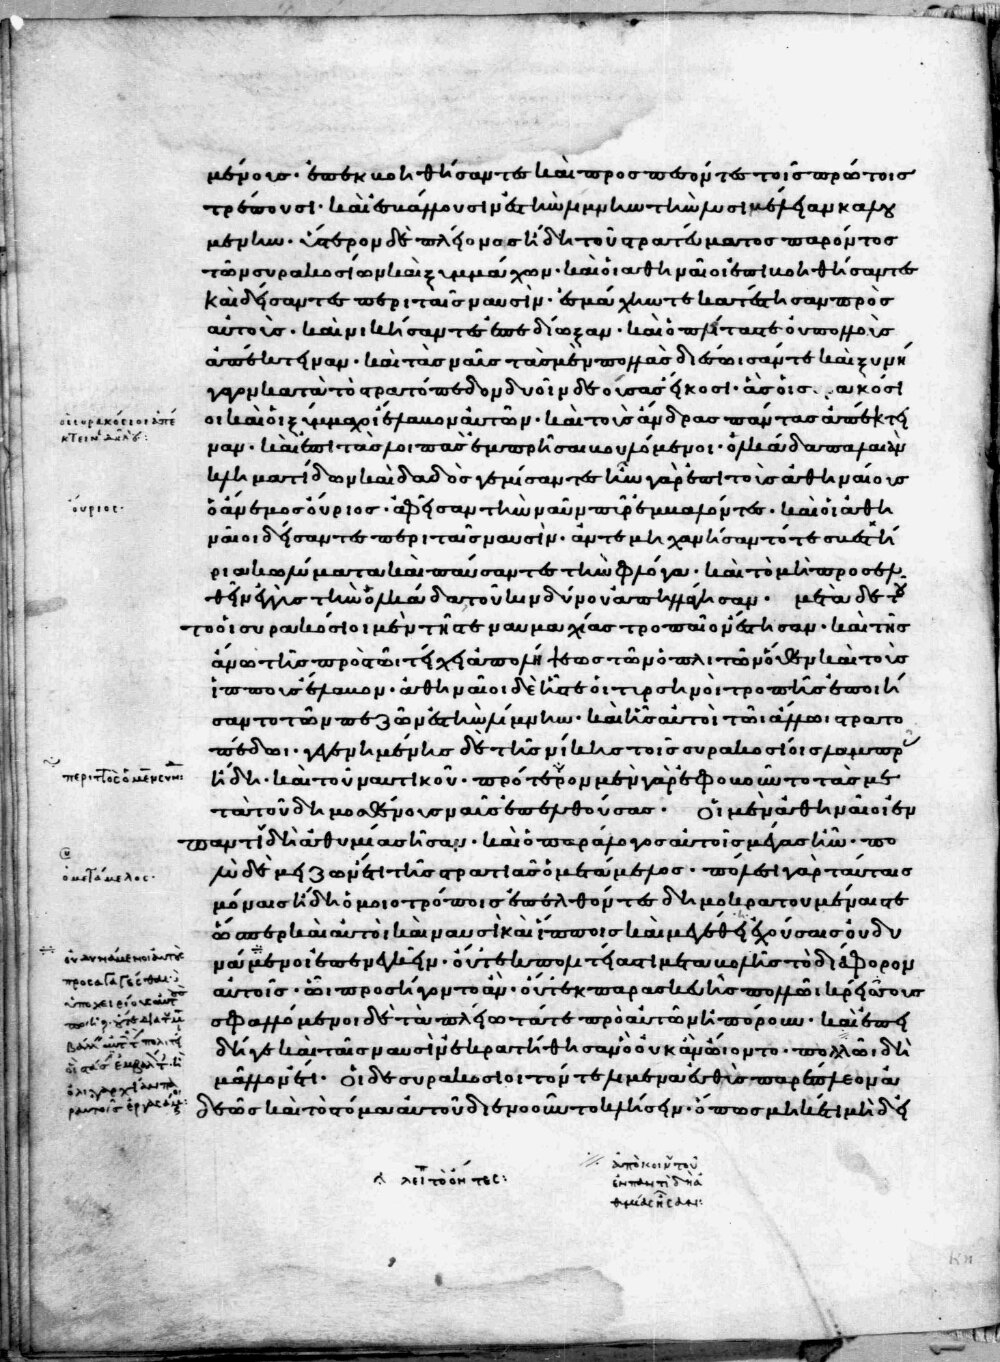 μένοις· ἐπεκβοηθήσαντες καὶ προσπεσόντες τοῖς πρώτοις
τρέπουσι· καὶ ἐσβάλλουσιν ἐς τὴν λίμνην τὴν λυσιμέλειαν καλου
μένην· ὕστερον δὲ πλέονος ἤδη τοῦ στρατεύματος παρόντος
τῶν συρακοσίων καὶ ξυμμάχων· καὶ οἱ ἀθηναῖοι ἐπιβοηθήσαντες
καὶ δείσαντες περὶ ταῖς ναυσὶν· ἐς μάχην τε κατέστησαν πρὸς
αὐτοὺς· καὶ νικήσαντες ἐπεδίωξαν· καὶ ὁπλίτας τε οὐ πολλοὺς
ἀπέκτειναν· καὶ τὰς ναῦς τὰς μὲν πολλὰς διέσωσάν τε καὶ ξυνή
γαγον κατὰ τὸ στρατόπεδον δυοῖν δεούσας εἴκοσι· ἃς οἱ συρακόσι
οι καὶ οἱ ξύμμαχοι ἔλαβον αὐτῶν· καὶ τοὺς ἄνδρας πάντας ἀπέκτει
ναν· καὶ ἐπὶ τὰς λοιπὰς ἐμπρῆσαι βουλόμενοι· ὁλκάδα παλαιὰν
κληματίδων καὶ δαδὸς γεμίσαντες ἦν γὰρ ἐπὶ τοὺς ἀθηναίους
ὁ ἄνεμος οὔριος· ἀφεῖσαν τὴν ναῦν πῦρ ἐμβαλόντες· καὶ οἱ ἀθη
ναῖοι δείσαντες περὶ ταῖς ναυσὶν· ἀντεμηχανήσαντό τε σβεστή
ρια κωλύματα καὶ παύσαντες τὴν φλόγα· καὶ τὸ μὴ προσελ
θεῖν ἐγγὺς τὴν ὁλκάδα τοῦ κινδύνου ἀπηλλάγησαν· μετὰ δὲ τοῦ
το οἱ συρακόσιοι μὲν τῆς τε ναυμαχίας τροπαῖον ἔστησαν· καὶ τῆς
ἄνω τῆς πρὸς τῶι τείχει ἀπολήψεως τῶν ὁπλιτῶν ὅθεν καὶ τοὺς
ἵππους ἔλαβον· ἀθηναῖοι δὲ ἧς τε οἱ τυρσηνοὶ τροπῆς ἐποιή
σαντο τῶν πεζῶν ἐς τὴν λίμνην· καὶ ἧς αὐτοὶ τῶι ἄλλωι στρατο
πέδωι· γεγενημένης δὲ τῆς νίκης τοῖς συρακοσίοις λαμπρᾶς
ἤδη· καὶ τοῦ ναυτικοῦ· πρότερον μὲν γὰρ ἐφοβοῦντο τὰς με
τὰ τοῦ δημοσθένους ναῦς ἐπελθούσας· οἱ μὲν ἀθηναῖοι ἐν
παντὶ δὴ ἀθυμίας ἦσαν· καὶ ὁ παράλογος αὐτοῖς μέγας ἦν· πο
λὺ δὲ μείζων ἔτι τῆς στρατιᾶς ὁ μετάμελος· πόλεσι γὰρ ταύταις
μόναις ἤδη ὁμοιοτρόποις ἐπελθόντες δημοκρατουμέναις τε
ὥσπερ καὶ αὐτοὶ καὶ ναυσὶ καὶ ἵπποις καὶ μεγέθει ἐχούσαις οὐ δυ
νάμενοι ἐπενεγκεῖν· οὔτε ἐκ πολιτείας τι μεταβολῆς τὸ διάφορον
αὐτοῖς· ὧι προσήγοντο ἂν· οὔτ' ἐκ παρασκευῆς πολλῶι κρείσσους
σφαλλόμενοι δὲ τὰ πλείω τά τε πρὸ αὐτῶν ἠπόρουν· καὶ ἐπει
δή γε καὶ ταῖς ναυσὶν ἐκρατήθησαν ὃ οὐκ ἂν ὤιοντο· πολλῶι δὴ
μᾶλλον ἔτι· οἱ δὲ συρακόσιοι τόν τε λιμένα εὐθὺς παρέπλεον ἀ
δεῶς καὶ τὸ στόμα αὐτοῦ διενοοῦντο κλήσειν· ὅπως μηκέτι μηδ' εἰ
οἱ συρακόσιοι ἀπέ
κτειναν δηλ
οὔριος·
ὁ μετάμελος·
λείπει τὸ ὄντες:
ἀπὸ κοινοῦ τοῦ
ἐν παντὶ δὴ ἀ
θυμίας ἦσαν: